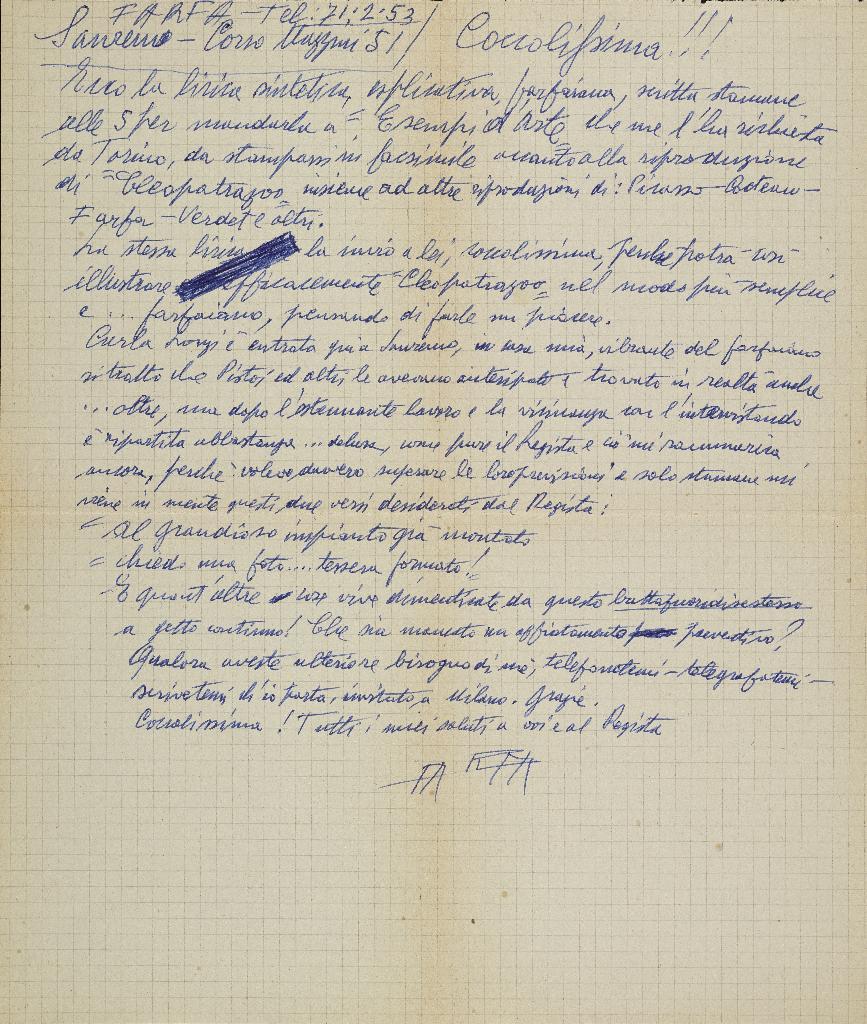 FARFA - Tel: 71-2-53
Sanremo - Corso Mazzini 51 / Coccolissima!!!
Ecco la lirica sintetica, esplicativa, farfaiana, scritta stamane
alle 5 per mandarla a "Esempi d'Arte che me l'ha richiesta
da Torino, da stamparsi in facsimile accanto alla riproduzione
di "Cleopatrazoo insieme ad altre riproduzioni di: Picasso - Cocteau -
Farfa - Verdet e altri.
La stessa lirica la invio a lei, coccolissima, perché potrà così
illustrare efficacemente "Cleopatrazoo" nel modo più semplice
e ... farfaiano, pensando di farle un piacere.
Carla Lonzi è entrata qui a Sanremo, in casa mia, vibrante del farfaiano
ritratto che Pistoi ed altri le avevano anticipato e trovato in realtà anche
... oltre, ma dopo l'estenuante lavoro e la vicinanza con l'intervistando
è ripartita abbastanza ... delusa, come pure il Regista e ciò mi rammarica
ancora, perché volevo davvero superare le loro previsioni e solo stamane mi
viene in mente questi due versi desiderati dal Regista:
"Al grandioso impianto già montato
"chiedo una foto.... tessera formato!"
E quant'altre cose vive dimenticate da questo buttafuoridisestesso
a getto continuo! Che sia mancato un affiatamento preventivo?
Qualora aveste ulteriore bisogno di me, telefonatemi - telegrafatemi -
scrivetemi ch'io parta, invitato, a Milano. Grazie.
Coccolissima! Tutti i miei saluti a voi e al Regista
FARFA